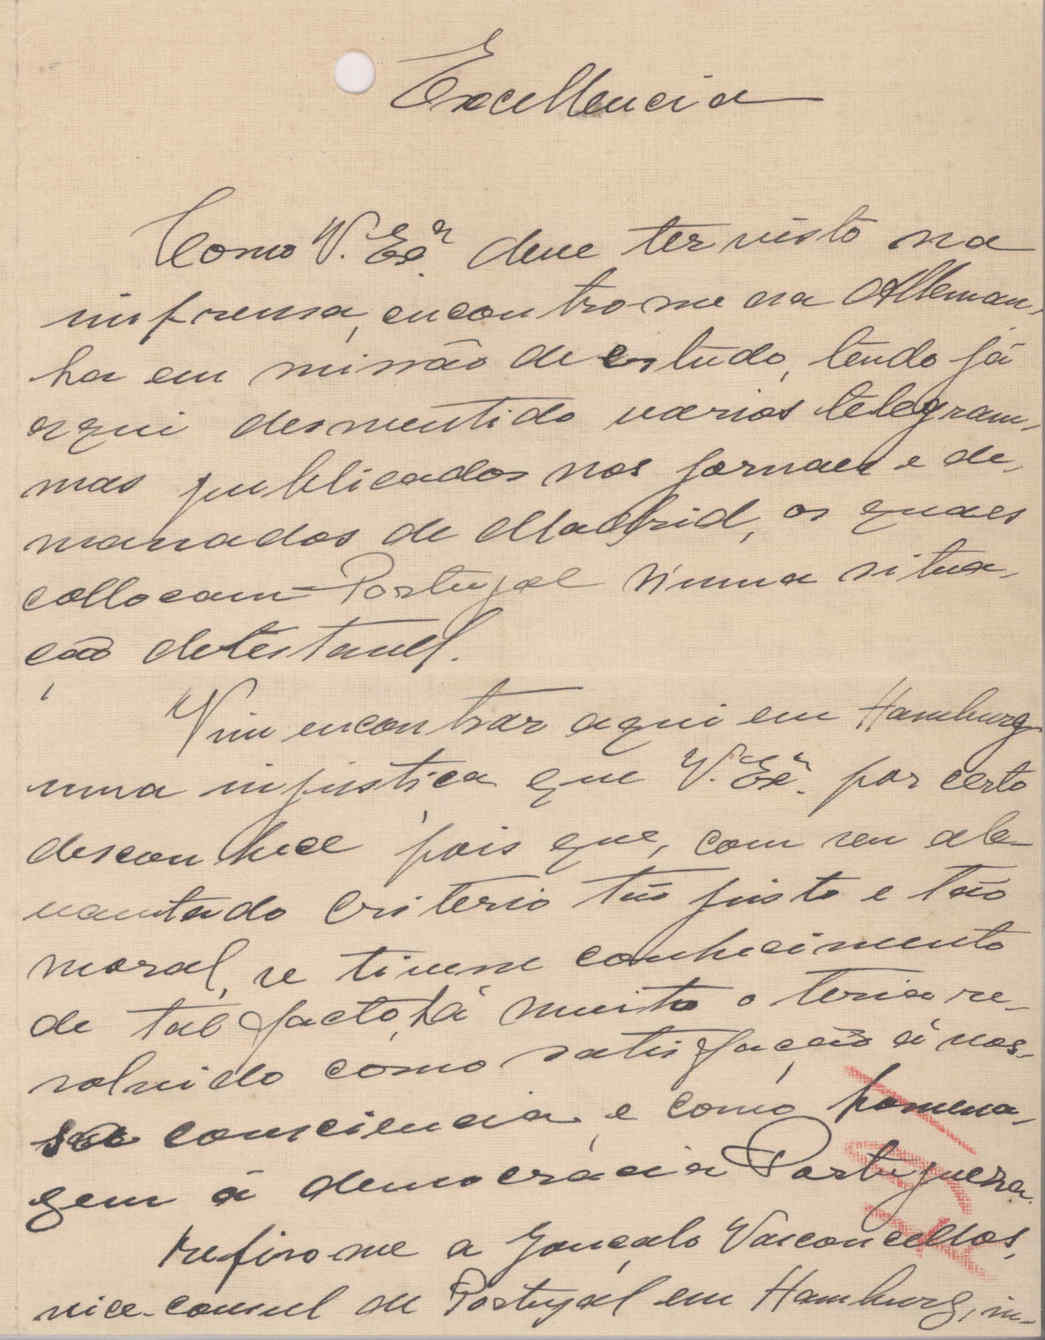 Excellencia
Como V. Exª. deve ter visto na
imprensa, encontro-me na Alleman-
ha em missão de estudo, tendo já
aqui desmentido varios telegram-
mas publicados nos jornaes e de-
manados de Madrid, os quaes
collocam Portugal n'uma situa-
ção detestavel.
Vim encontrar aqui em Hamburg
uma injustiça que V. Exª. por certo
desconhece, pois que, com seu ale-
vantado criterio tão justo e tão
moral, se tivesse conhecimento
de tal facto, há muito o teria re-
solvido como satisfação á nos-
sa consciencia, e como homena-
gem á democrácia Portugueza.
Refiro-me a Gonçalo Vasconcellos,
vice-consul de Portugal em Hamburg, in-